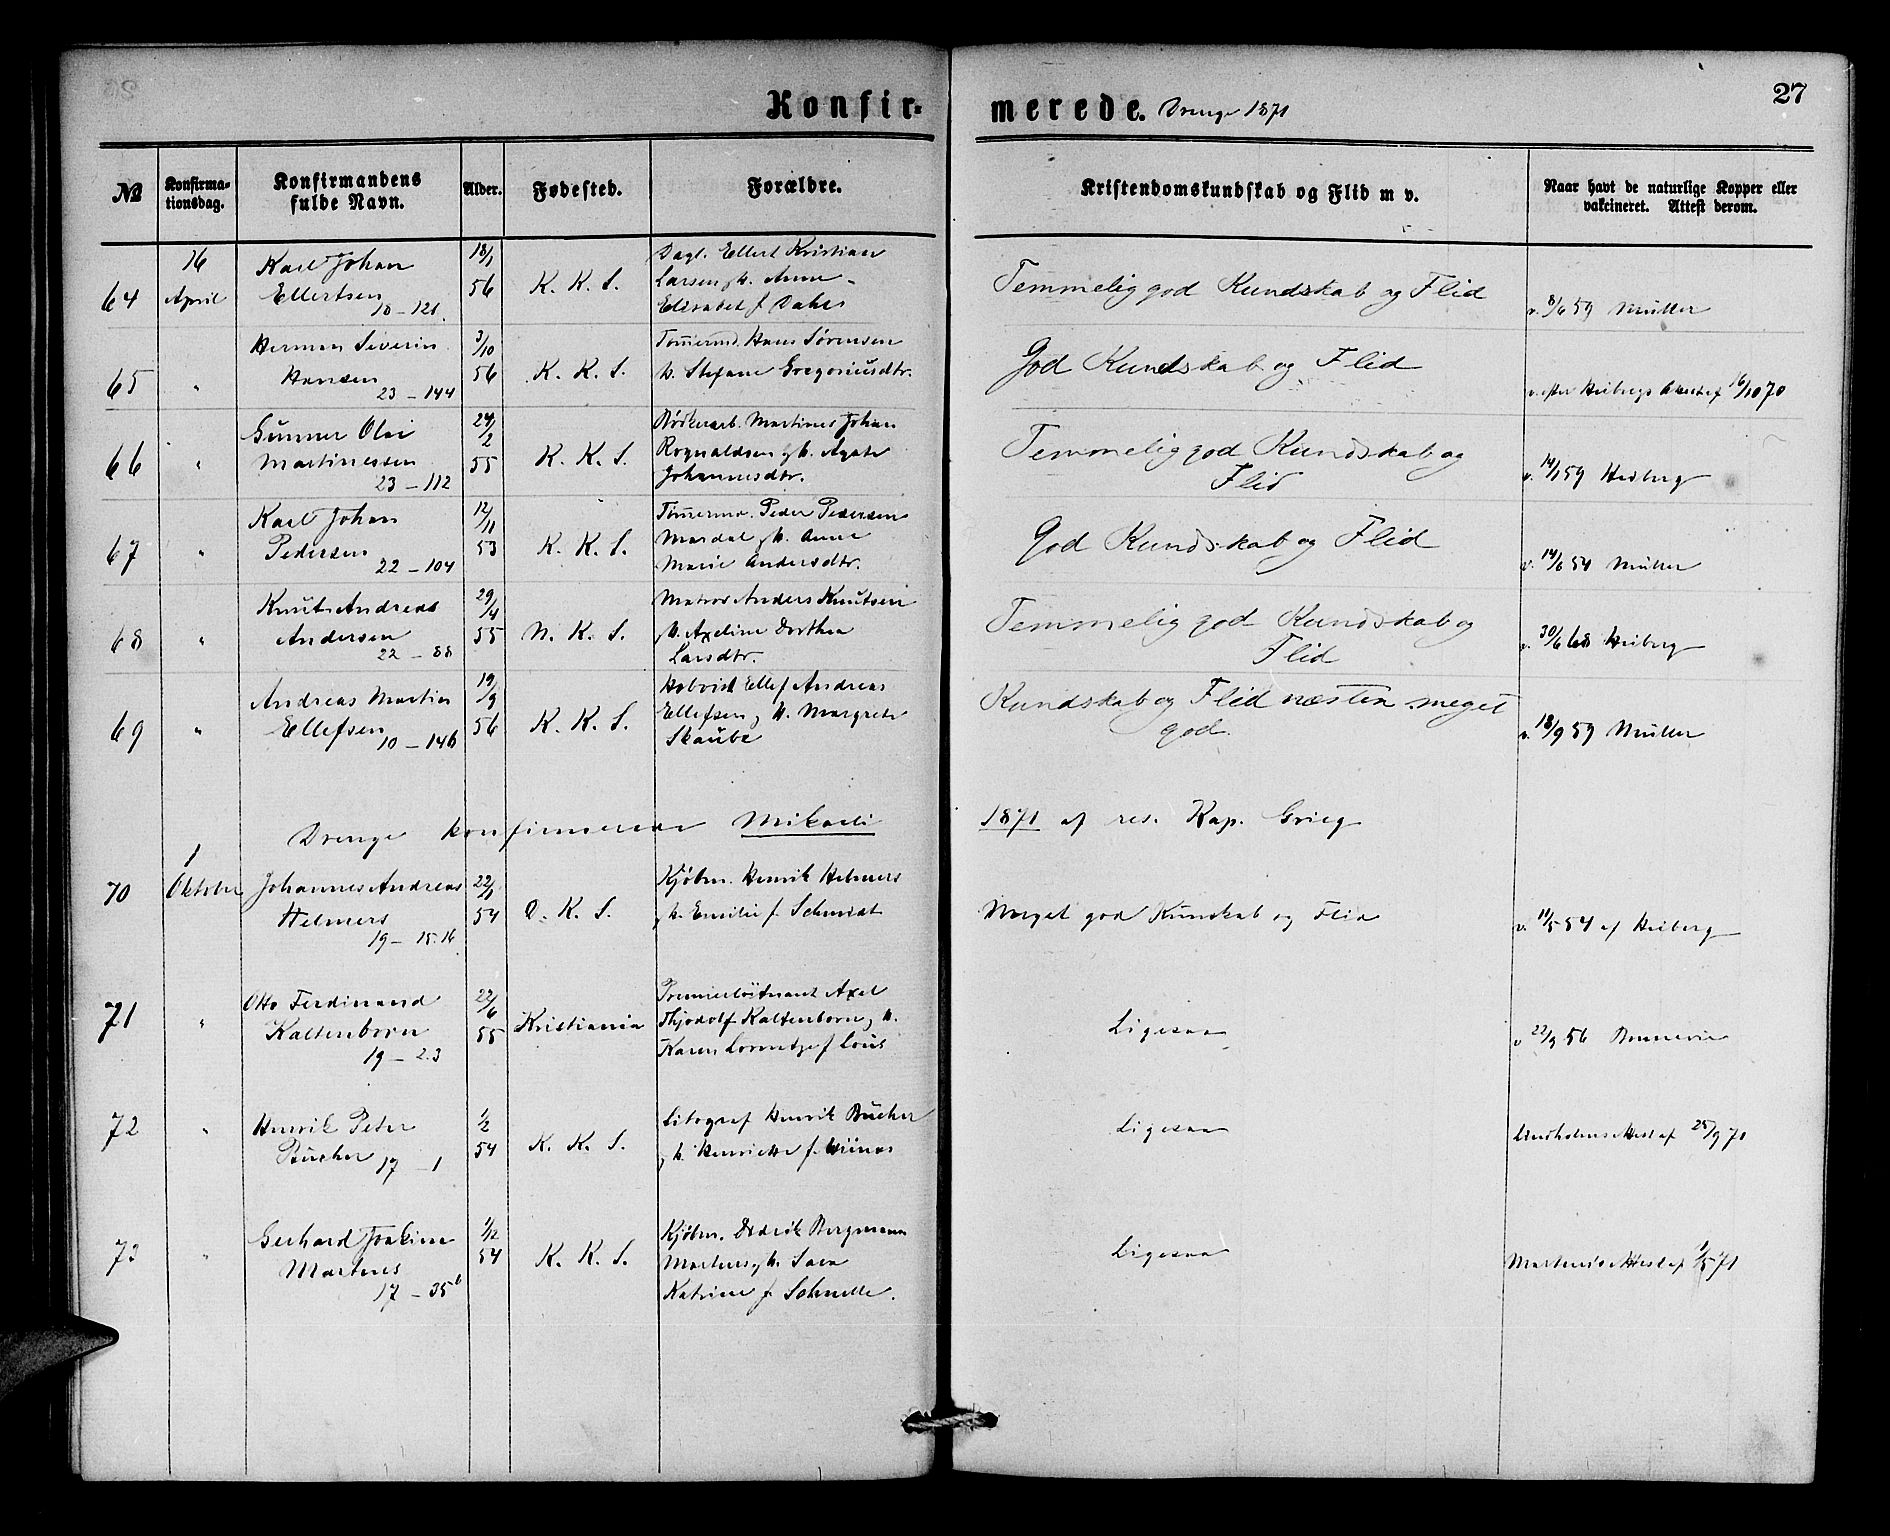 27
Konfirmerede. Drenge 1871
№
Konfirmationsdag.
Konfirmandens fulde Navn.
Alder.
Fødested.
Forældre.
Kristendomskundskab og Flid m v.
Naar havt de naturlige Kopper eller vakcineret. Attest derom.
64
16 April
Karl Johan
Ellertsen
10 – 121.
18/1 56
K. K. S.
Dagl. Ellert Kristian
Larsen, h. Anne
Elisabet f. Dahl
Temmelig god Kundskab og Flid
v. 8/6 59 Müller
65
"
Herman Severin
Hansen
23 – 144
3/10 56
K. K. S.
Tømermd. Hans Sørensen
h. Stefane Gregoriusdtr.
God Kundskab og Flid
v. efter Heibergs Attest af 16/10 70
66
"
Gunner Olai
Martinessen
23 – 112
24/2 55
K. K. S.
Bødkerarb. Martines Johan
Rognaldsen, h. Agate
Johannesdtr.
Temmelig god Kundskab og
Flid
v. 14/1 59 Heiberg
67
"
Karl Johan
Pedersen
22 – 104
12/11 53
K. K. S.
Tømerma. Peder Pedersen
Mardal, h. Anne
Marie Andersdtr.
God Kundskab og Flid
v. 14/6 54 Müller
68
"
Knut Andreas
Andersen
22 – 88
29/4 55
N. K. S.
Matros Anders Knutsen
h. Axeline Dorthea
Larsdtr.
Temmelig god Kundskab og
Flid
v. 30/6 68 Heiberg
69
"
Andreas Martin
Ellefsen
10 – 146
19/9 56
K. K. S.
Ellef Andreas
Ellefsen, h. Margrete
Skaube
Kundskab og Flid næsten meget
god.
v. 18/9 59 Müller
Drenge konfirmerede Mikaeli 1871 af res. Kap. Grieg
70
1 Oktober
Johannes Andreas
Helmers
19 – 15.16
22/1 54
D. K. S.
Kjøbm. Henrik Helmers
h. Emilie f. Schmidt
Meget god Kunskab og Flid
v. 11/5 54 af Heiberg
71
"
Otto Ferdinand
Kaltenborn
19 – 23
22/6 55
Kristiania
Premierløitnant Axel
Thjodolf Kaltenborn, h.
Karen Lorentze f. Lous
Ligesaa
v 22/9 56 Bonnevie
72
"
Henrik Peter
Bucher
17 – 1
1/2 54
K. K. S.
Litograf Henrik Bucher
h. Henriette f. Wiinas
Ligesaa
Lindholms Attest af 25/9 71
73
"
Gerhard Joakim
Martens
17 – 35b
1/12 54
K. K. S.
Kjøbm. Didrik Bergmann
Martens, h. Sara
Katrine f. Schnelle.
Ligesaa
Martens's Attest af 1/5 71